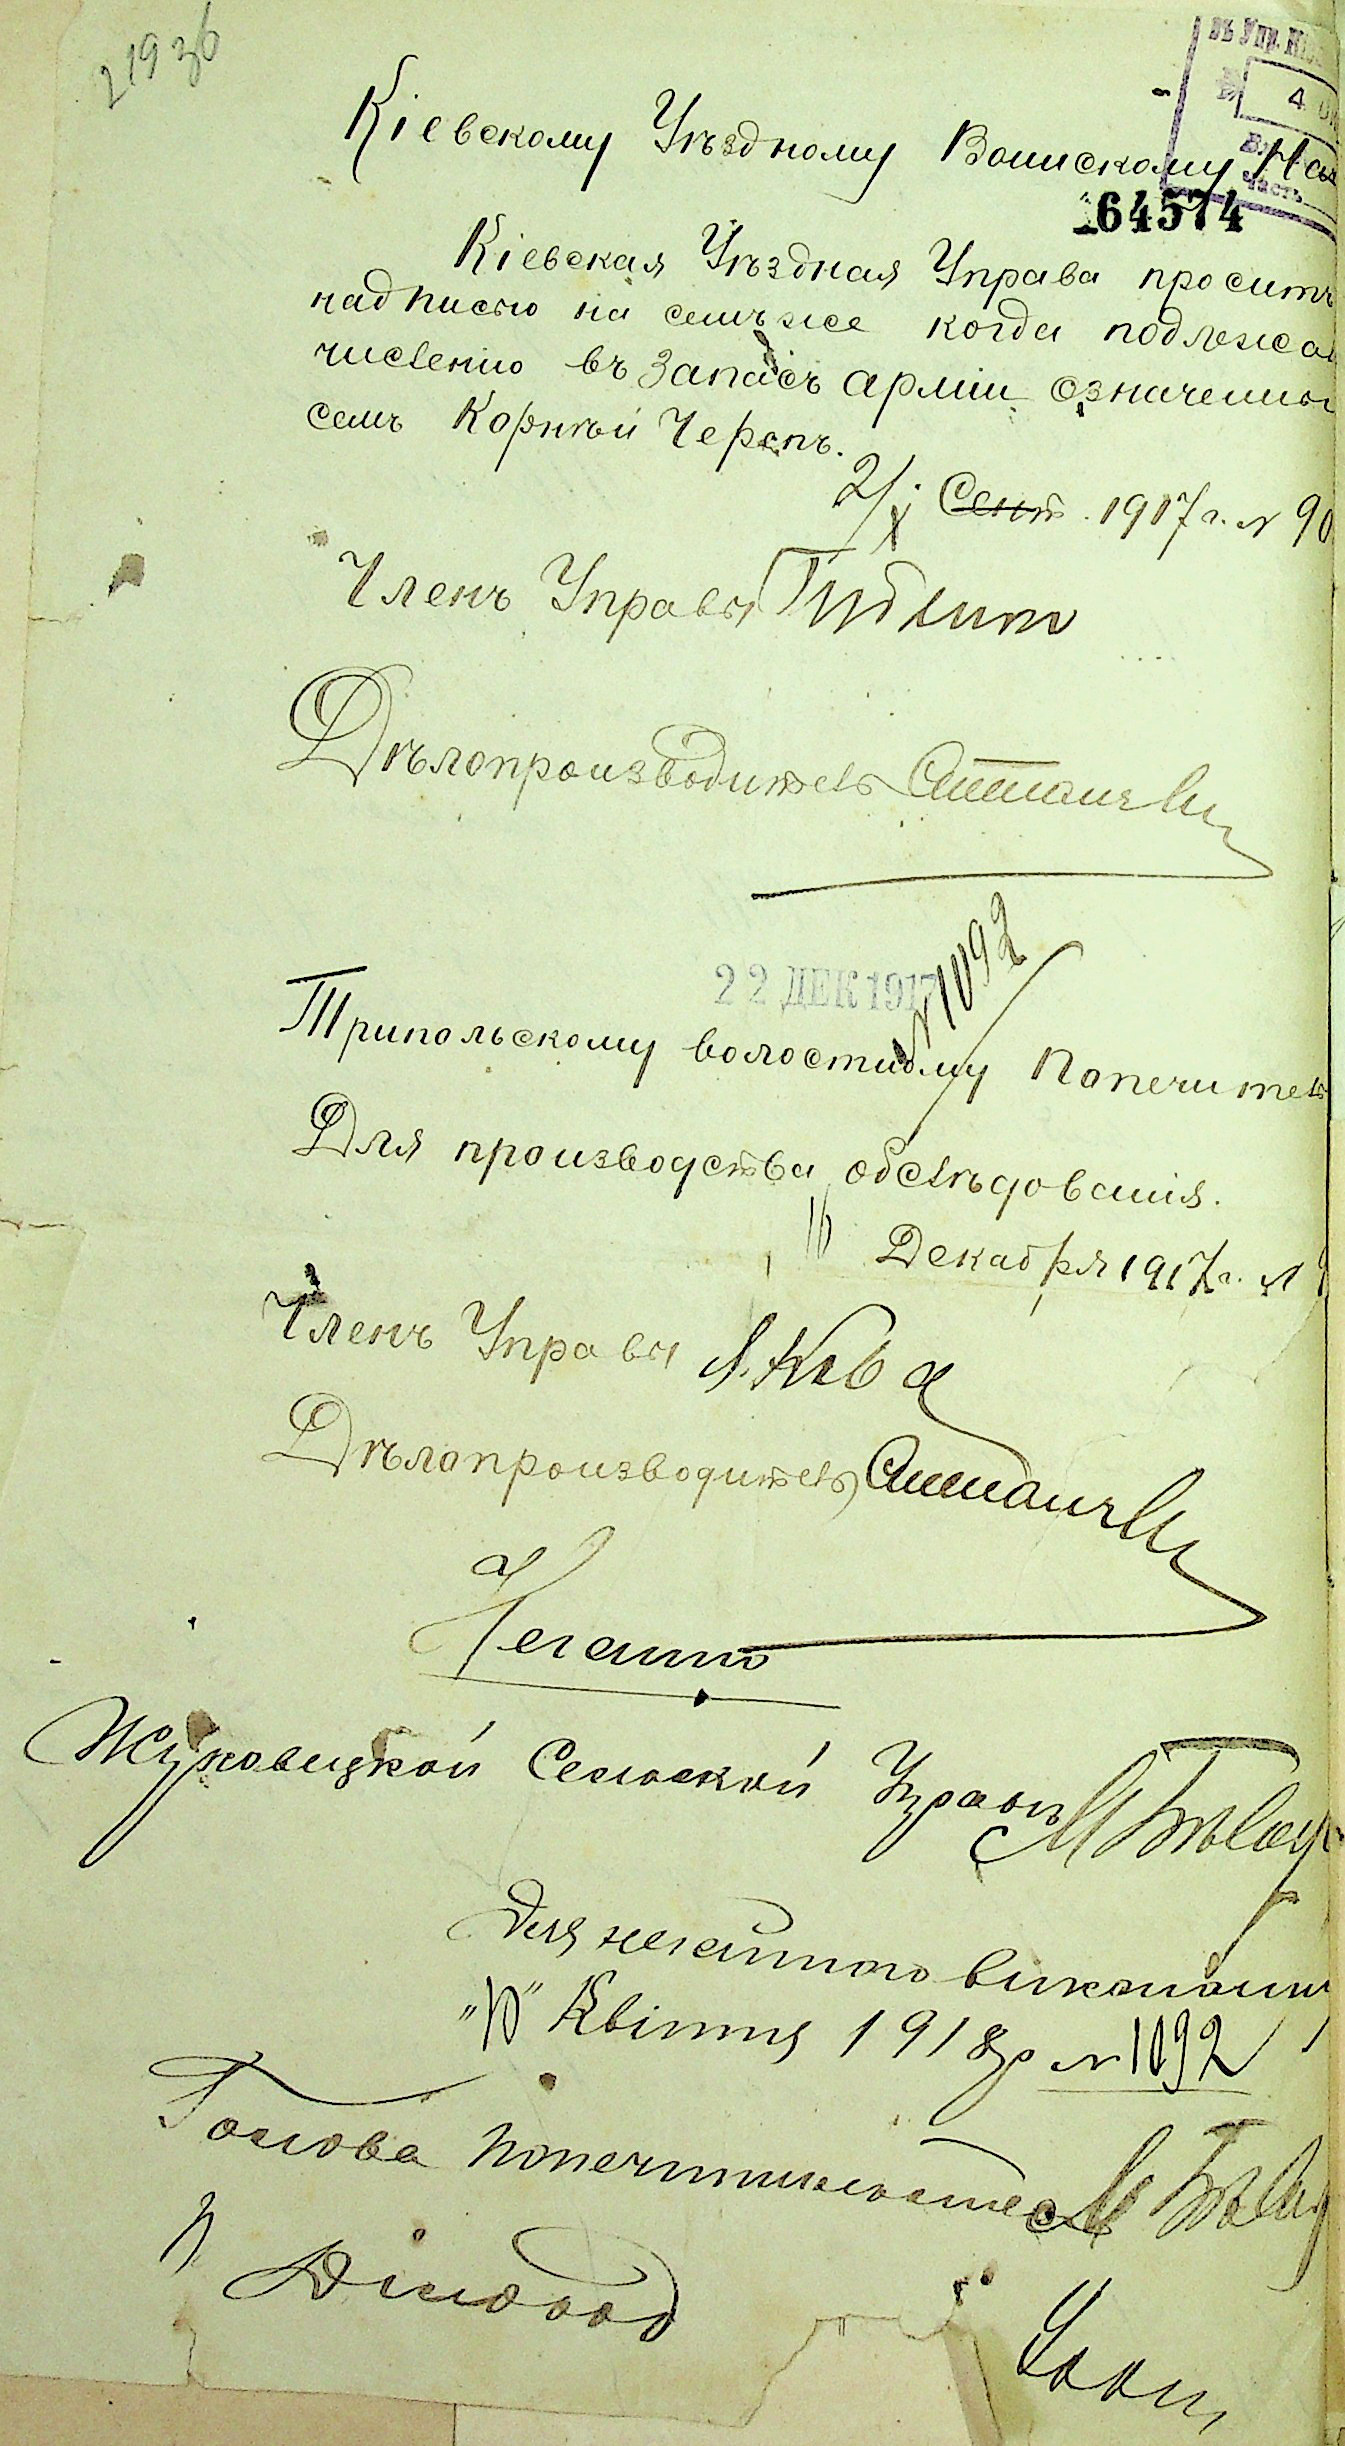 21936
въ Упр.
4
часть
Кіевскому Уѣздному Воинскому Нач
164574
Кіевская Уѣздная Управа проситъ
надписью на семъ же когда подлежал
числению въ запасъ арміи означенны
семъ Корнѣй Черепъ.
2/X Сент. 1917 г. № 90
Членъ Управы
Дѣлопроизводитель
22 ДЕК 1917
№ 1092
Трипольскому волостному Попечител
Для производства обслѣдованія.
16 Декабря 1917 г. №
Членъ Управы
Дѣлопроизводитель
Негайно
Жуковецкой Сельской Управѣ
Для негайного виконання
"10" Квітня 1918 р № 1092
Голова Попечительства
Діловод